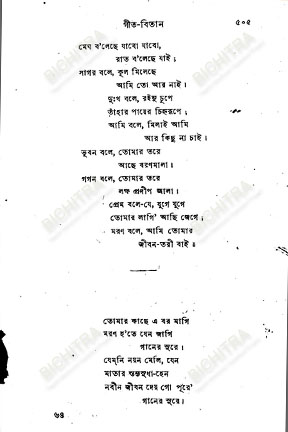 গীত-বিতান ৫০৫
মেঘ ব'লেছে যাবো যাবো,
রাত ব'লেছে যাই;
সাগর বলে, কূল মিলেছে
আমি তো আর নাই।
দুঃখ বলে, রইনু চুপে
তাঁহার পায়ের চিহ্নরূপে;
আমি বলে, মিলাই আমি
আর কিছু না চাই।
ভুবন বলে, তোমার তরে
আছে বরণমালা।
গগন বলে, তোমার তরে
লক্ষ প্রদীপ জ্বালা।
প্রেম বলে-যে, যুগে যুগে
তোমার লাগি' আছি জেগে;
মরণ বলে, আমি তোমার
জীবন-তরী বাই॥
তোমার কাছে এ বর মাগি
মরণ হ'তে যেন জাগি
গানের সুরে।
যেমনি নয়ন মেলি, যেন
মাতার স্তন্যসুধা-হেন
নবীন জীবন দেয় গো পূরে'
গানের সুরে।
৬৪
BICHITRA
BICHITRA
BICHITRA
BICHITRA
BICHITRA